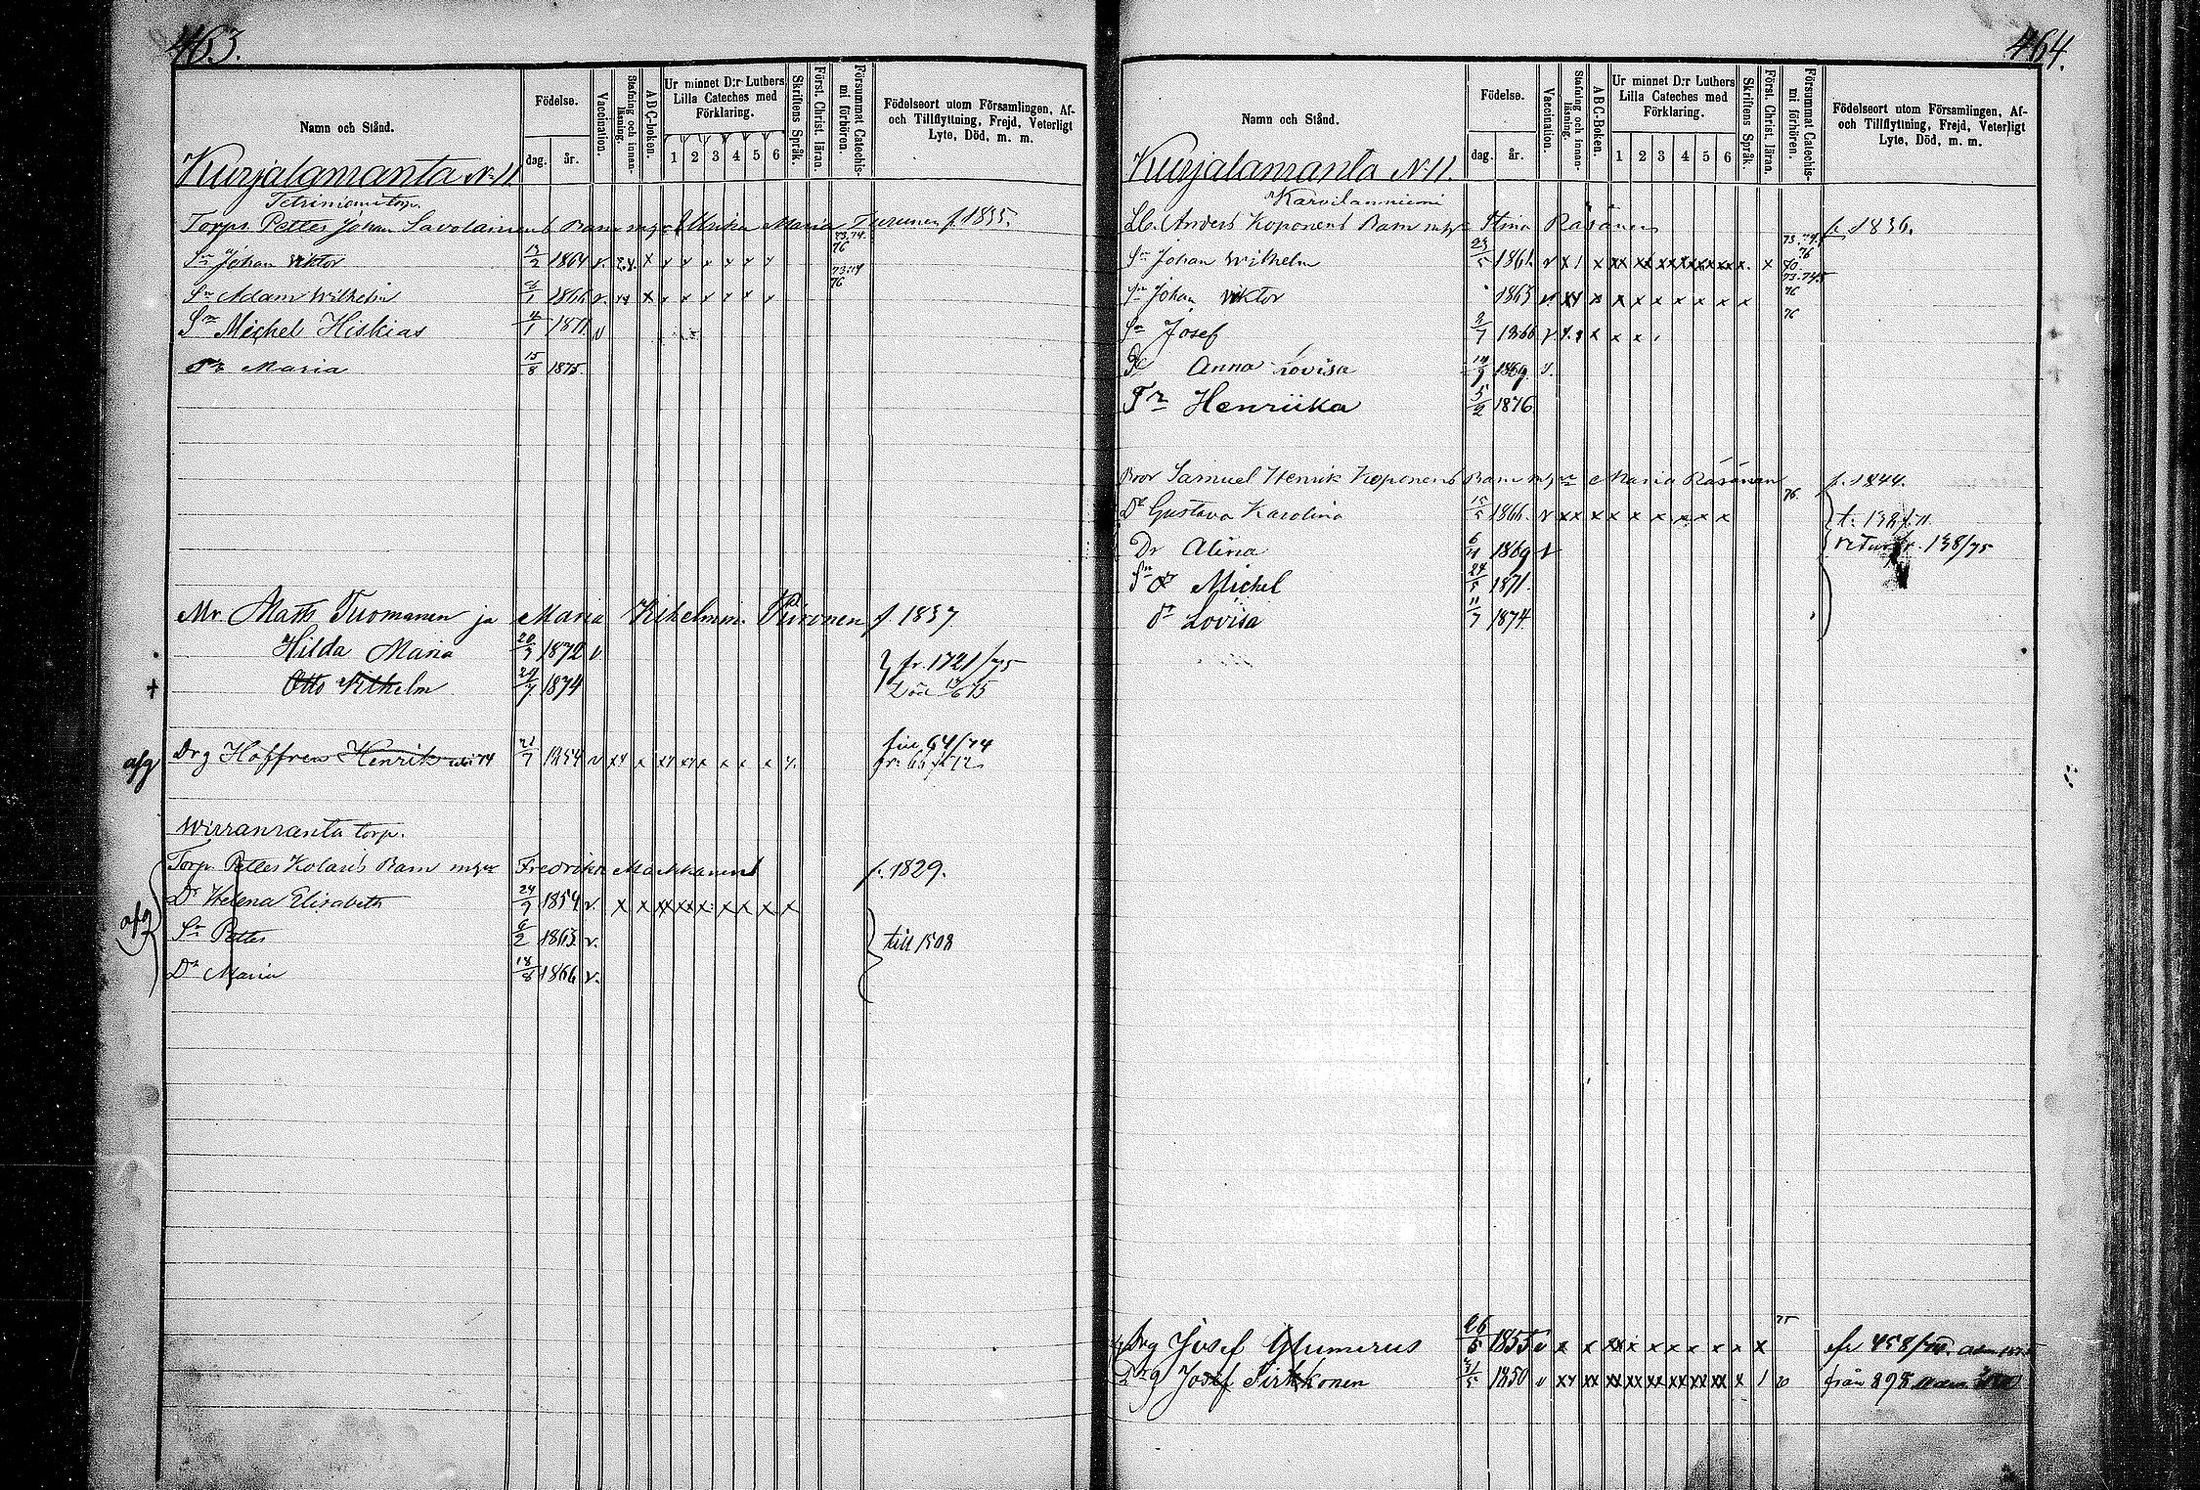 463.
Namn och Stånd.
Födelse.
dag.
år.
Vaccination.
Stafning och innan-läsning.
ABC-boken.
Ur minnet D:r Luthers
Lilla Cateches med
Förklaring.
1 2 3 4 5 6
Skriftens Språk.
Först. Christ. läran.
Försummat Catechis-mi förhören.
Födelseort utom Församlingen, Af-
och Tillflyttning, Frejd, Veterligt
Lyte, Död, m. m.
Kurjalanranta No 11.
torp.
Torp. Petter Johan Savolainens Barn m. Ulrika Maria Turunen f. 1835.
73.74.
76
Sn Johan Viktor 13/2 1864 v. x x x x x x x
73.74
76
Sn Adam Wilhelm 1866 v. xx x x x x x x x
Sn Michel Hiskias 4/1 1871 v
Dr Maria 15/8 1875
Mr. Matts Tuomanen ja Maria Vilhelmin. Piironen f. 1837
Hilda Maria 20/3 1872 v.
fr. 1721/75
+ Otto Vilhelm 24/7 1874
Död
afg Drg Hoffren Henrik 74 21/7 1854 v xx x xx xx x x x x
64/74
Wirranranta torp.
Torp. Petter Kolari's Barn m. Fredrika Markkanens f. 1829.
afg
Dr Helena Elisabeth 24/9 1854 v. x x xx xx x x x x x
Sn Petter 6/2 1863 v.
till 1508
Dr Maria 18/8 1866 v.
464.
Namn och Stånd.
Födelse.
dag.
år.
Vaccination.
Stafning och innan-läsning.
ABC-Boken.
Ur minnet D:r Luthers
Lilla Cateches med
Förklaring.
1 2 3 4 5 6
Skriftens Språk.
Först. Christ. läran.
Försummat Catechis-mi förhören.
Födelseort utom Församlingen, Af-
och Tillflyttning, Frejd, Veterligt
Lyte, Död, m. m.
Kurjalanranta N 11.
Karvilanniemi
Anders Koponens Barn m. Stina Räsänen f. 1836.
73.74.
76
Sn Johan Wilhelm 23/5 1861. v
70
Sn Johan Viktor 1863 v. xx x x x x x x x x
76
76
Sn Josef 3/7 1866 v
Dr Anna Lovisa 1869. v.
Dr Henriika 5/2 1876
Bror Samuel Henrik Koponens Barn m. Maria Räsänen f. 1844.
76.
Dr Gustava Karolina 15/5 1866. v xx x x x x x x x
Dr Alina 6/11 1869 v
retur fr. 138/75
Sn Michel 24/5 1871.
Dr Lovisa 11/7 1874
75
Drg Josef Glumerus 26/5 1855 v x x xx x x x x x x x
458
Drg Josef Pirkkonen 1850 v xx xx xx xx xx xx xx xx x 1
från 898